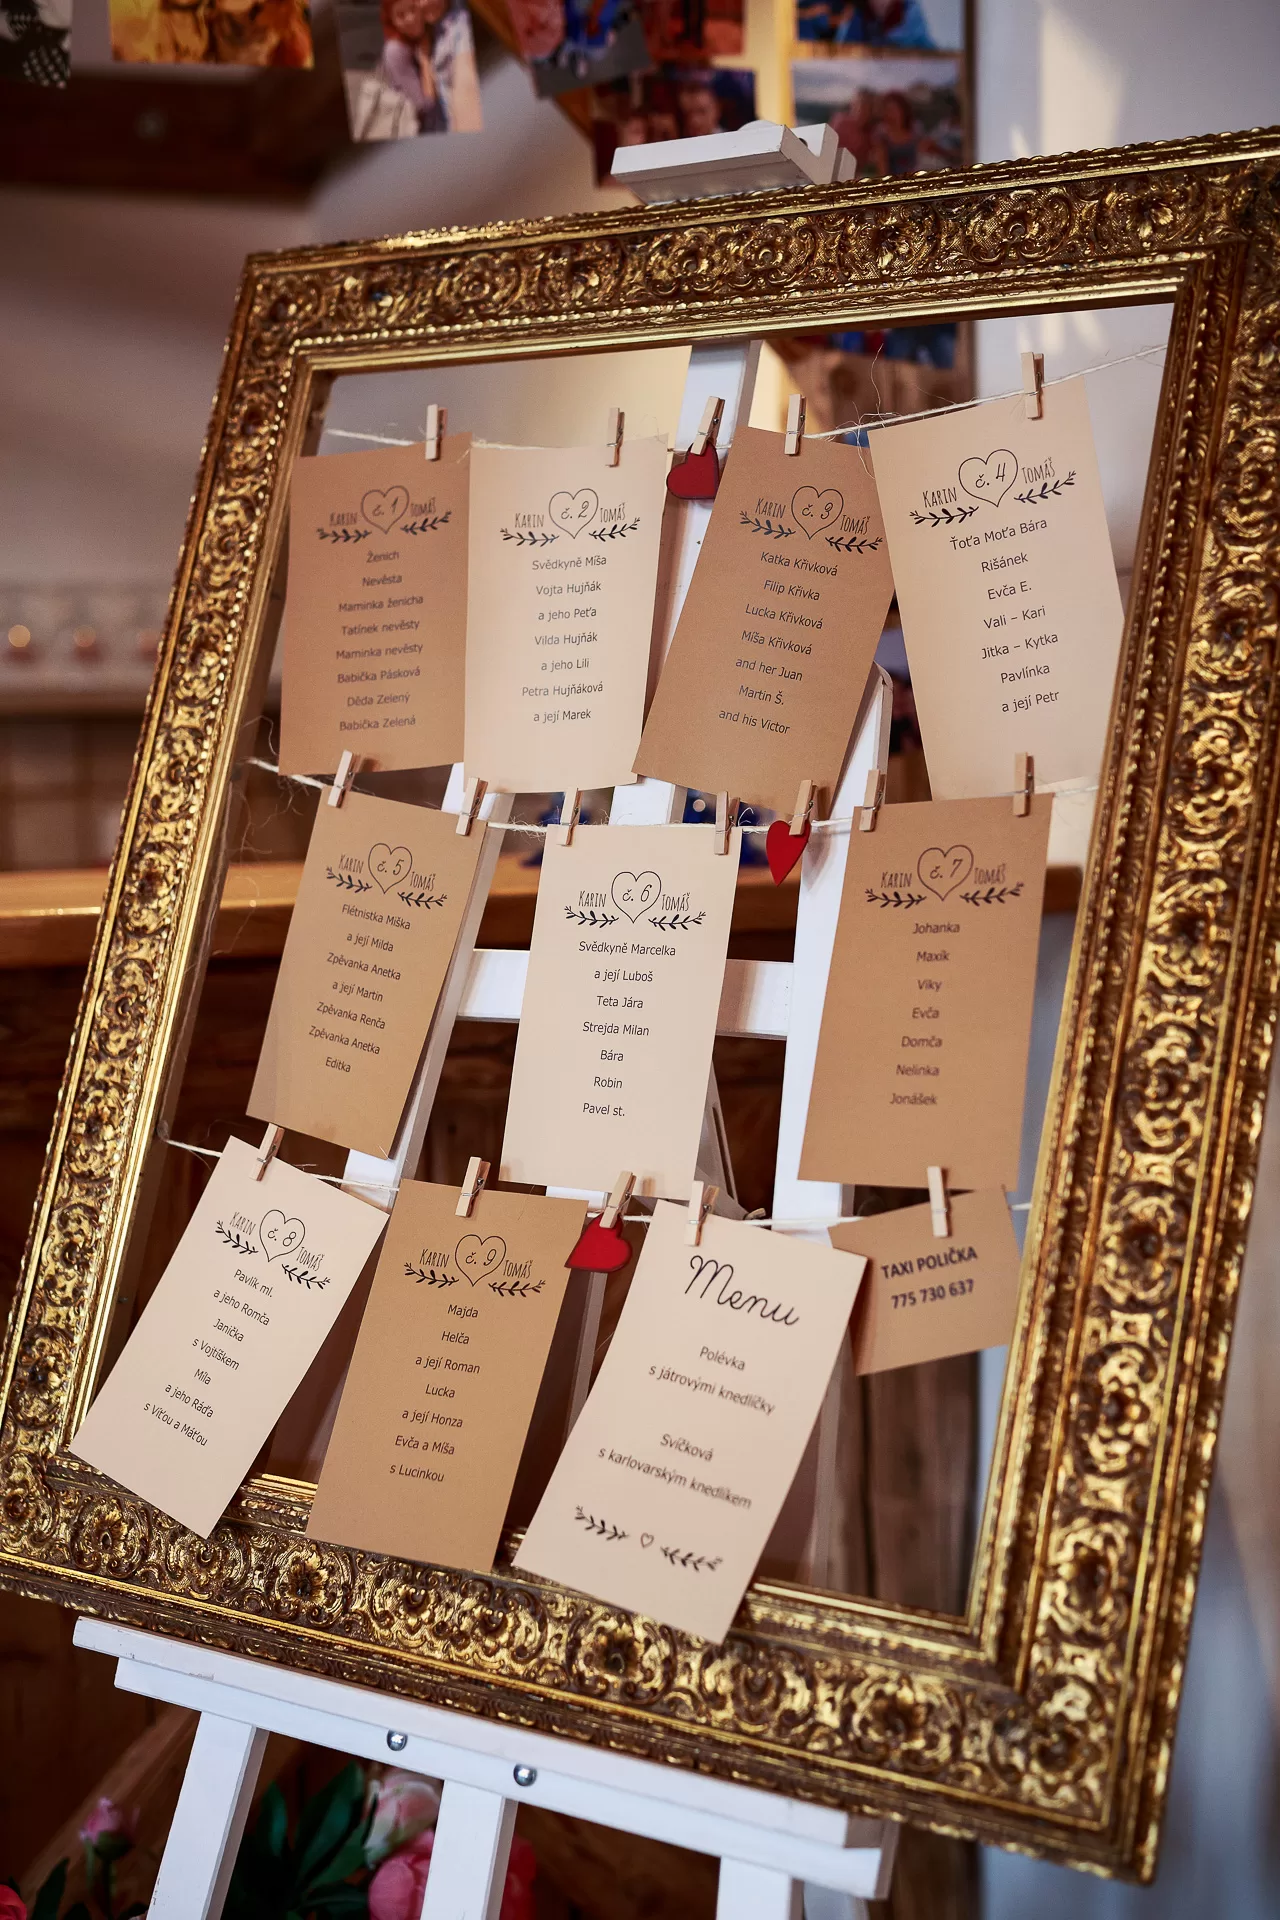 KARIN č. 1 TOMÁŠ
Ženich
Nevěsta
Maminka ženicha
Tatínek nevěsty
Maminka nevěsty
Babička Pásková
Děda Zelený
Babička Zelená
KARIN č. 2 TOMÁŠ
Svědkyně Míša
Vojta Hujňák
a jeho Peťa
Vilda Hujňák
a jeho Lili
Petra Hujňáková
a její Marek
KARIN č. 3 TOMÁŠ
Katka Křivková
Filip Křivka
Lucka Křivková
Míša Křivková
and her Juan
Martin Š.
and his Victor
KARIN č. 4 TOMÁŠ
Ťoťa Moťa Bára
Rišánek
Evča E.
Vali – Kari
Jitka – Kytka
Pavlínka
a její Petr
KARIN č. 5 TOMÁŠ
Flétnistka Miška
a její Milda
Zpěvanka Anetka
a její Martin
Zpěvanka Renča
Zpěvanka Anetka
Editka
KARIN č. 6 TOMÁŠ
Svědkyně Marcelka
a její Luboš
Teta Jára
Strejda Milan
Bára
Robin
Pavel st.
KARIN č. 7 TOMÁŠ
Johanka
Maxík
Viky
Evča
Domča
Nelinka
Jonášek
KARIN č. 8 TOMÁŠ
Pavlík ml.
a jeho Romča
Janička
s Vojtíškem
Míla
a jeho Ráďa
s Víťou a Máťou
KARIN č. 9 TOMÁŠ
Majda
Helča
a její Roman
Lucka
a její Honza
Evča a Míša
s Lucinkou
Menu
Polévka
s játrovými knedlíčky
Svíčková
s karlovarským knedlíkem
TAXI POLIČKA
775 730 637